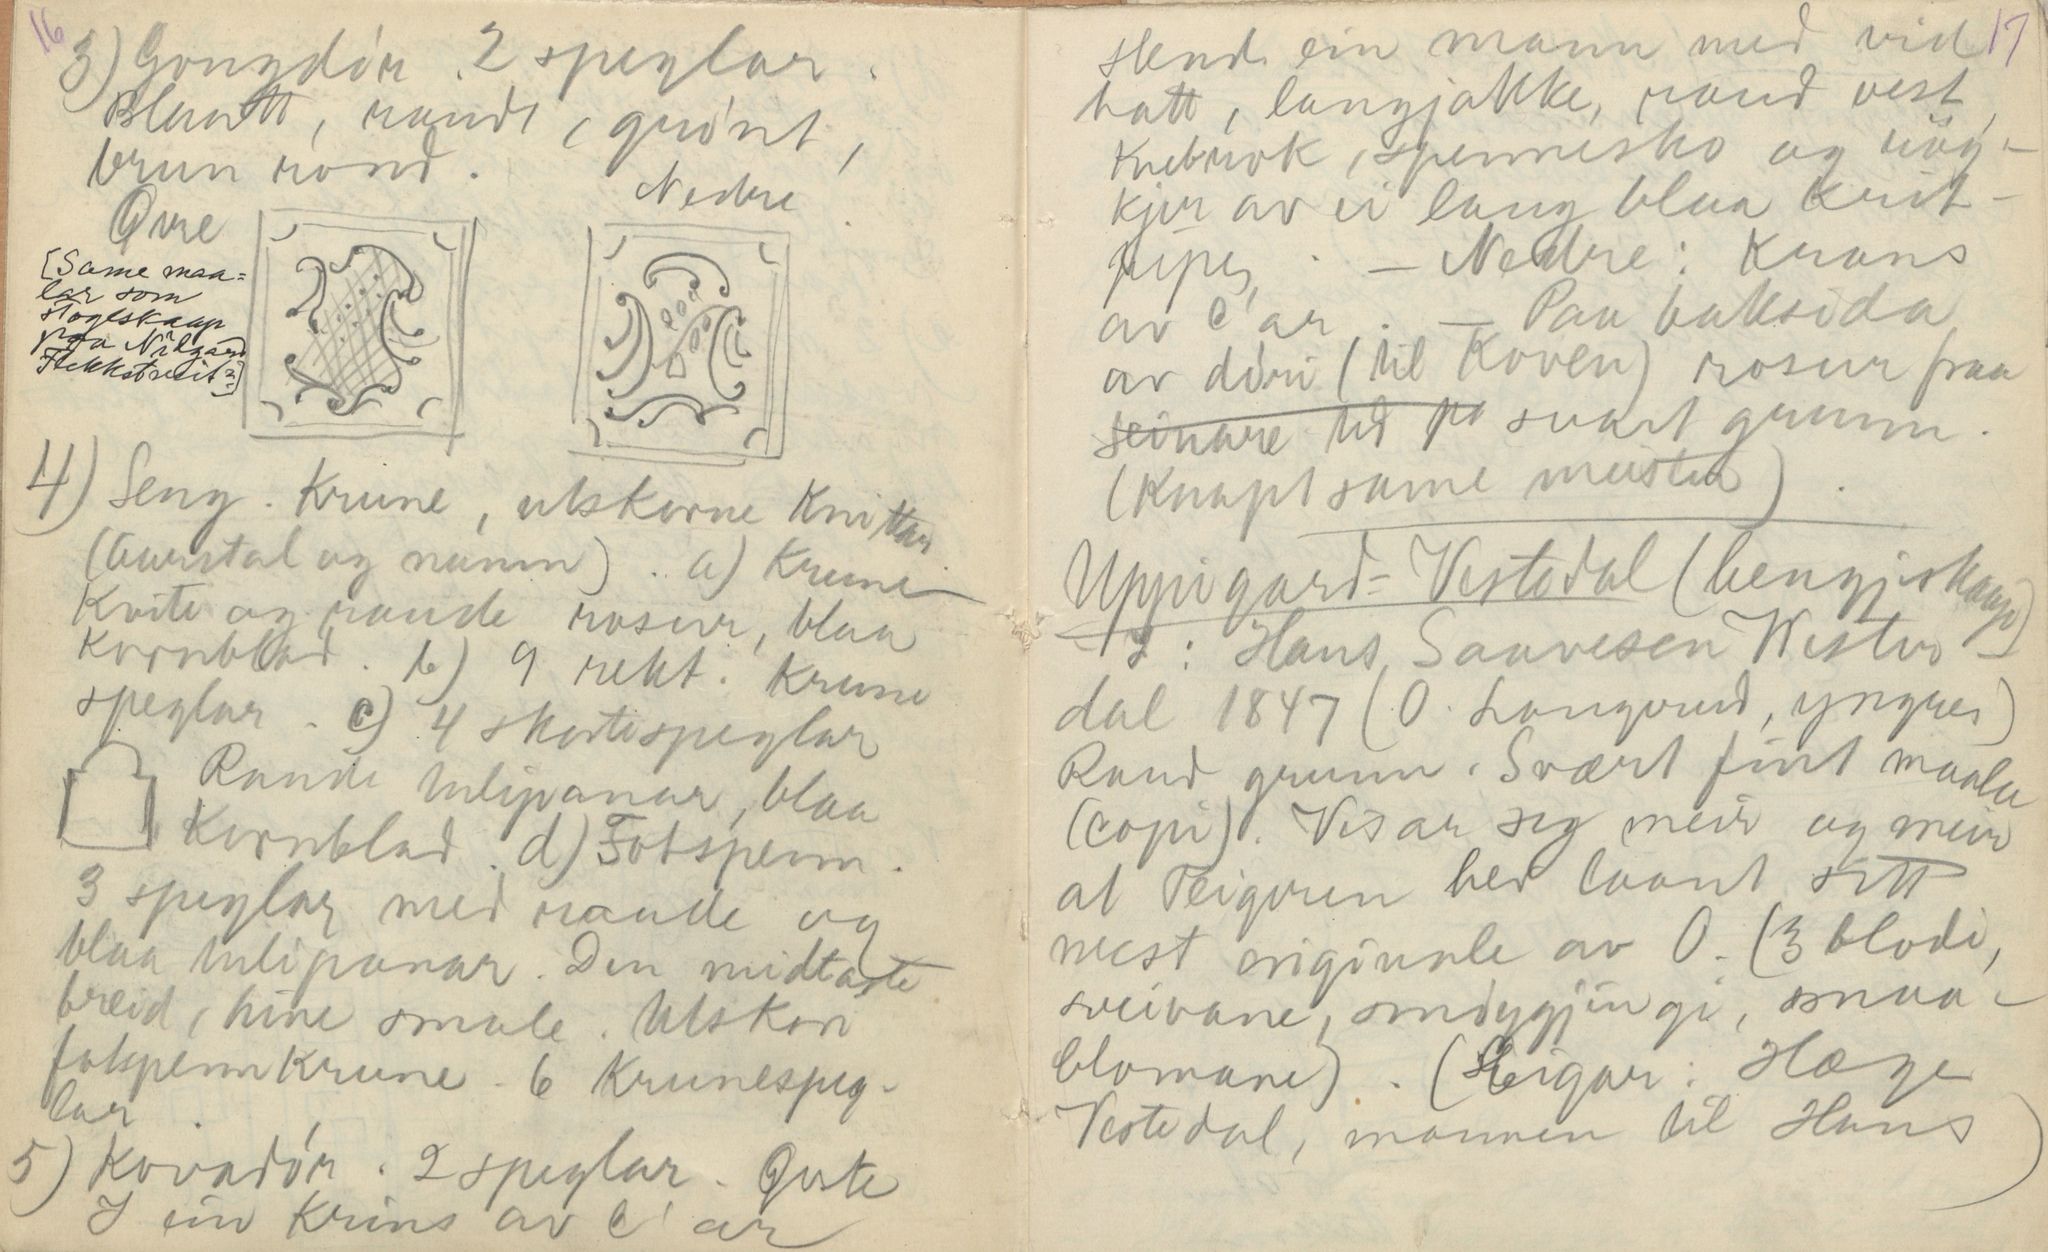 16
3) Gongdór. 2 speglar.
Blaatt, raudt, grónt,
brun rond.
Nedre
Qvre
[Same maa-
lar som
stogeskaap
fraa Nilgard
Flekkstveit?]
4) Seng. Krune, utskorne Knittar
(aarstal og namn). a) Krune
Kvite og raude rosur, blaa
Kornblad. b) 9 rekt. Krune
speglar. c) 4 skortespeglar
Raude tulipanar, blaa
Kornblad. d) Fotspenn.
3 speglar med raude og
blaa tulipanar. Den midtaste
breid, hine smale. Utskori
fotspennkrune. 6 Krunespeg-
lar.
5) Kovadór. 2 speglar. Qvste
I ein Krins av C'ar
17
stend ein mann med vid
hatt, langjakke, raud vest,
Knebrok, spennesko og röy-
kjer av ei lang blaa Krit-
pipe. — Nedre: Krans
av C'ar. — Paa baksida
av dóri (til Koven) rosur fraa
seinare tid på svart grunn.
(Knapt same meister).
Uppigard-Vestedal (hengjeskaap)
I: Hans Saavesen Wester-
dal 1847 (O. Langerud, yngre)
Raud grunn. Svært fint maala
(copi). Visar seg meir og meir
at Teigeren hev laant sitt
mest originale av O. (3 blodi,
sveivane, smóygjingi, smaa-
blomane). (Eigar: Hæge
Vestedal, mannen til Hans)